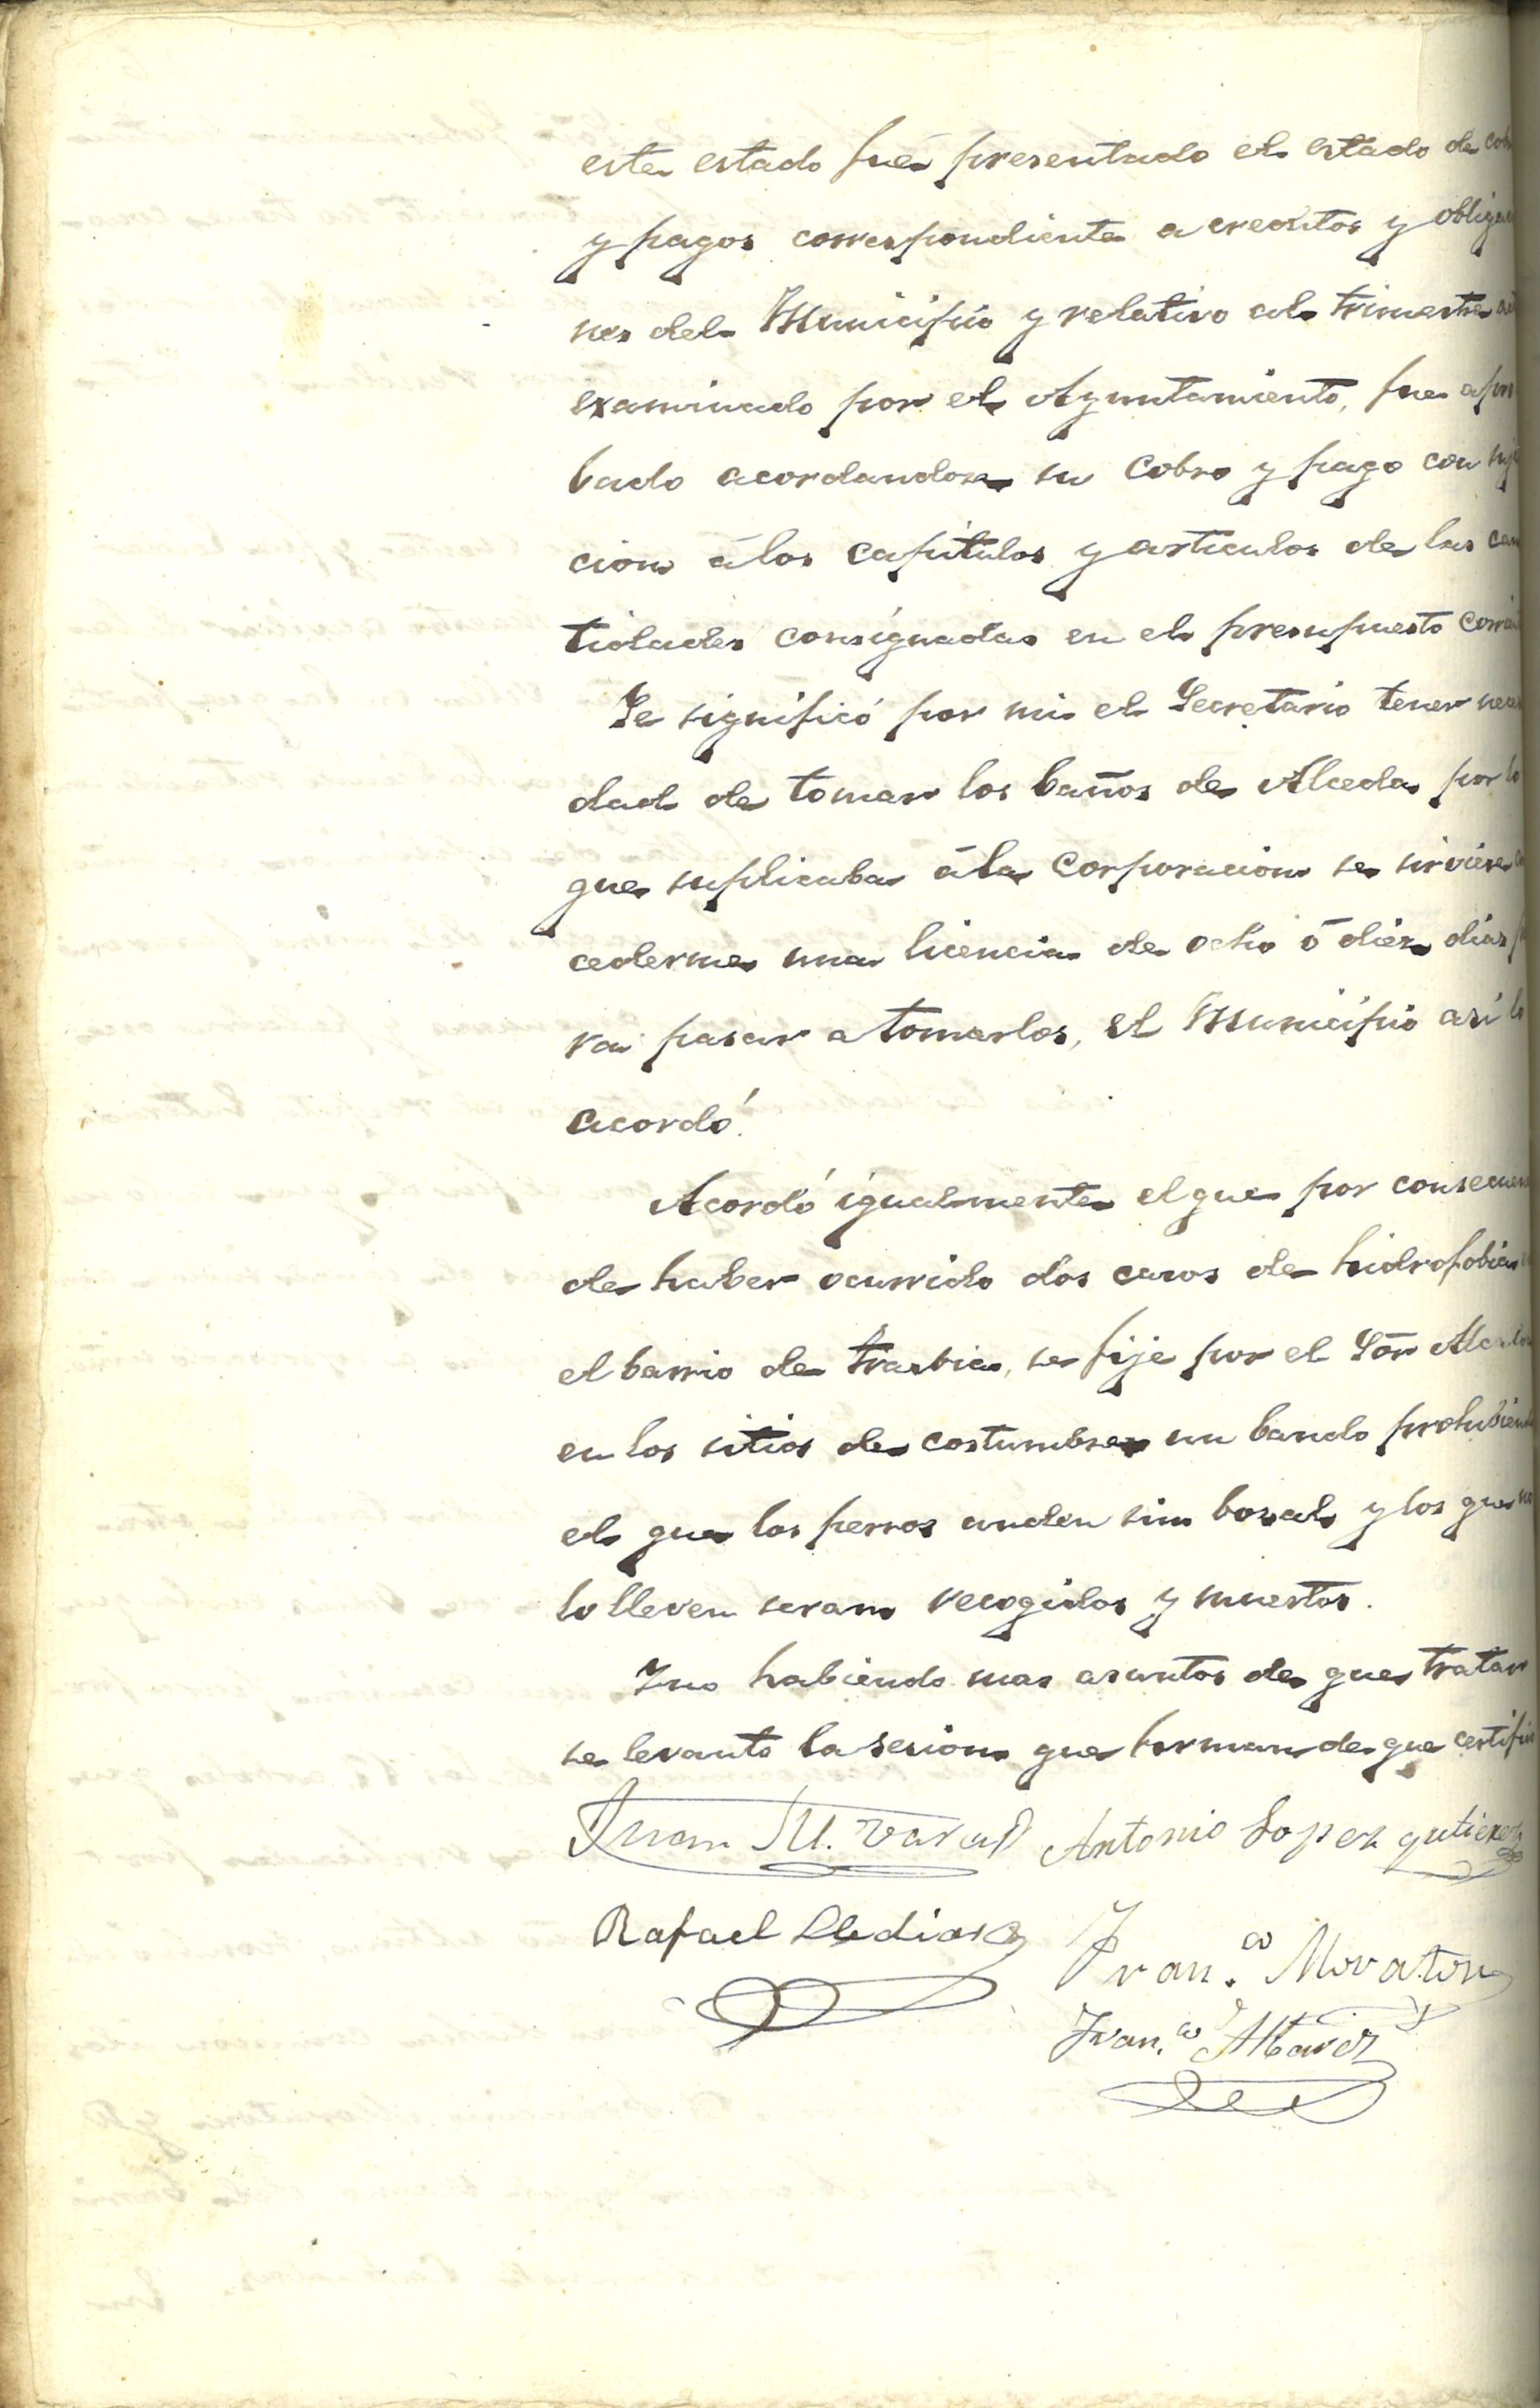 este estado fué presentado el estado de cob
y pagos correspondiente a creditos y obligac
nes del Municipio y relativo al trimestre act
examinado por el Ayuntamiento, fue apro
bado acordandose su cobro y pago con suje
cion á los capitulos y articulos de las can
tidades consignadas en el presupuesto corrient
Se significó por mi el Secretario tener neces
dad de tomar los baños de Alceda por lo
que suplicaba á la Corporacion se sirviese con
cederme una licencia de ocho ó diez dias p
ra pasar a tomarlos, el Municipio así lo
acordó.
Acordó igualmente el que por consecuen
de haber ocurrido dos casos de hidrofobia
el barrio de Trasvia, se fije por el Sõr Alcalde
en los sitios de costumbre un bando prohibiend
el que los perros anden sin bozal y los que no
lo lleven seran recogidos y muertos.
Y no habiendo mas asuntos de que tratar
se levanto la sesion que forman de que certifico
Juan M. Antonio Lopez gutierez
Rafael Lledias
Fran.co Moraton
Fran.co